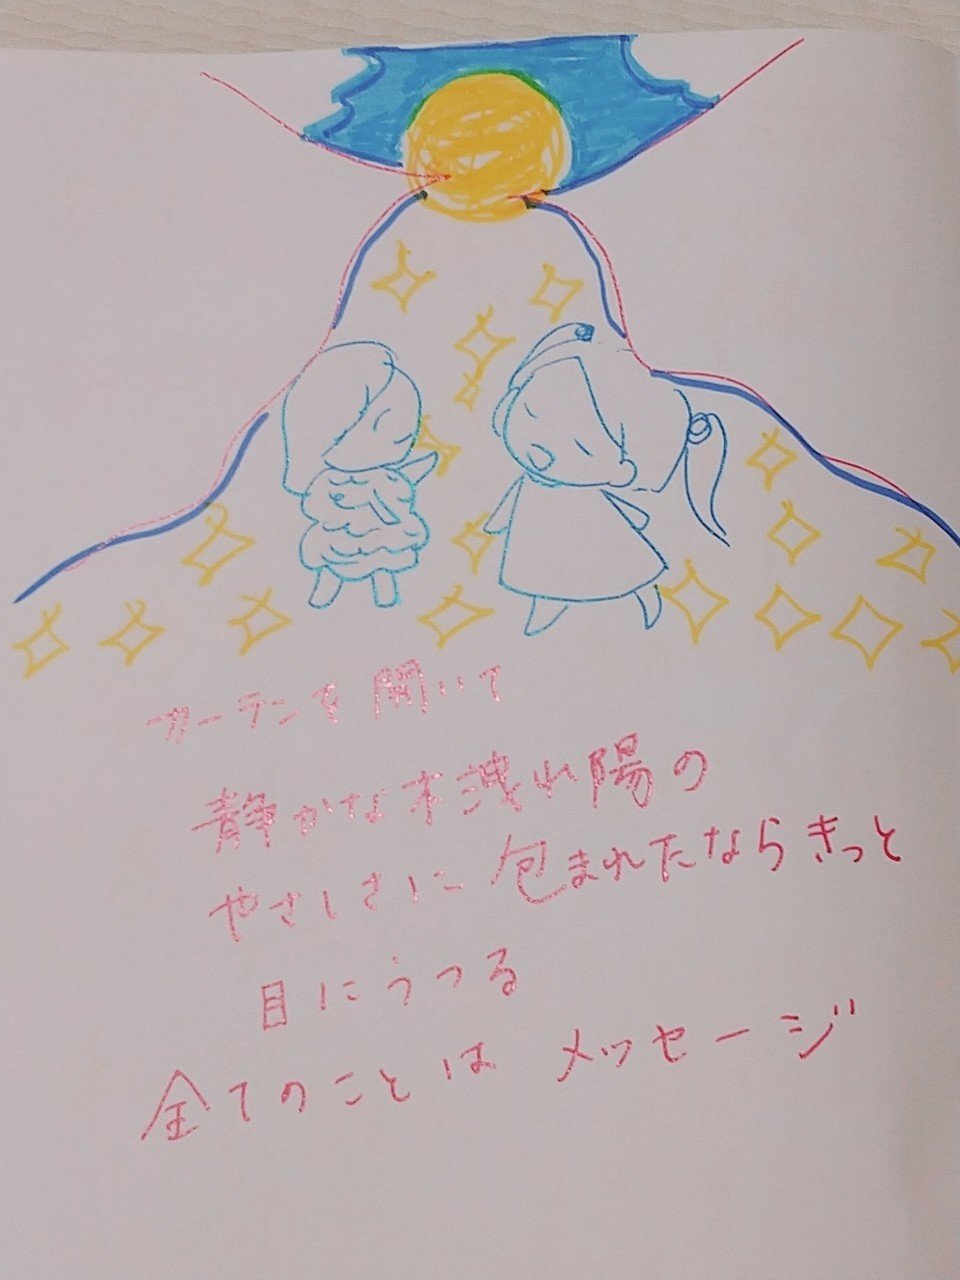 カーテンを開いて
静かな木洩れ陽の
やさしさに包まれたならきっと
目にうつる
全てのことは メッセージ